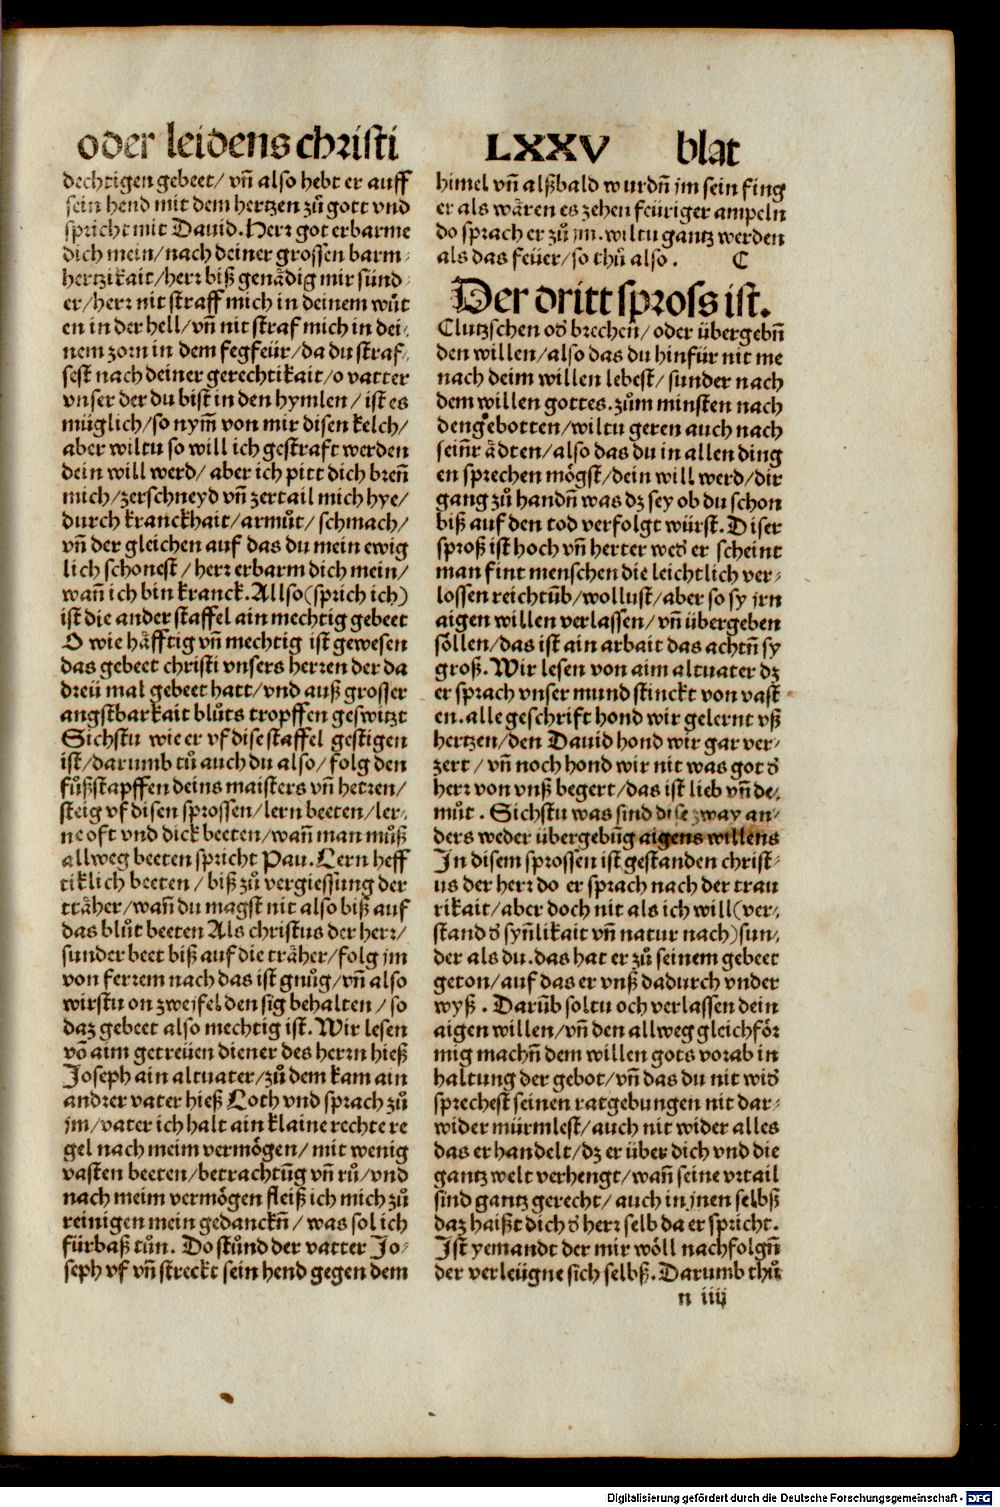 oder leidens christi LXXV blat
dechtigen gebeet/ vn̄ also hebt er auff
sein hend mit dem hertzen zů gott vnd
spricht mit Dauid. Herr got erbarme
dich mein/ nach deiner grossen barm⸗
hertzikait/ herr biß genädig mir sünd⸗
er/ herr nit straff mich in deinem wůt
en in der hell/ vn̄ nit straf mich in dei⸗
nem zorn in dem fegfeür/ da du straf⸗
fest nach deiner gerechtikait/ o vatter
vnser der du bist in den hymlen/ ist es
müglich/ so nym̄ von mir disen kelch/
aber wiltu so will ich gestraft werden
dein will werd/ aber ich pitt dich bren̄
mich/ zerschneyd vn̄ zertail mich hye/
durch kranckhait/ armůt/ schmach/
vn̄ der gleichen auf das du mein ewig
lich schonest/ herr erbarm dich mein/
wan̄ ich bin kranck. Allso (sprich ich)
ist die ander staffel ain mechtig gebeet
O wie häfftig vn̄ mechtig ist gewesen
das gebeet christi vnsers herren der da
dreü mal gebeet hatt/ vnd auß grosser
angstbarkait blůts tropffen geswitzt
Sichstu wie er vf dise staffel gestigen
ist/ darumb tů auch du also/ folg den
fůßstapffen deins maisters vn̄ herren/
steig vf disen sprossen/ lern beeten/ ler⸗
ne oft vnd dick beeten/ wan̄ man můß
allweg beeten spricht Pau. Lern heff
tiklich beeten/ biß zů vergiessung der
träher/ wan̄ du magst nit also biß auf
das blůt beeten Als christus der herr/
sunder beet biß auf die träher/ folg jm
von ferrem nach das ist gnůg/ vn̄ also
wirstu on zweifel den sig behalten/ so
daz gebeet also mechtig ist. Wir lesen
vō aim getreüen diener des herrn hieß
Joseph ain altuater/ zů dem kam ain
andrer vater hieß Loth vnd sprach zů
jm/ vater ich halt ain klaine rechte re
gel nach meim vermögen/ mit wenig
vasten beeten/ betrachtūg vn̄ rů/ vnd
nach meim vermögen fleiß ich mich zů
reinigen mein gedanckn̄/ was sol ich
fürbaß tůn. Do stůnd der vatter Jo⸗
seph vf vn̄ streckt sein hend gegen dem
himel vn̄ alßbald wurdn̄ jm sein fing
er als wären es zehen feüriger ampeln
do sprach er zů jm. wiltu gantz werden
als das feüer/ so thů also. C
Der dritt spross ist.
Clutzschen od' brechen̄/ oder übergebn̄
den willen/ also das du hinfür nit me
nach deim willen lebest/ sunder nach
dem willen gottes. zům minsten nach
den gebotten/ wiltu geren auch nach
sein̄r ädten/ also das du in allen ding
en sprechen mögst/ dein will werd/ dir
gang zů handn̄ was dz sey ob du schon
biß auf den tod verfolgt würst. Diser
sproß ist hoch vn̄ herter wed' er scheint
man fint menschen die leichtlich ver⸗
lossen reichtūb/ wollust/ aber so sy jrn
aigen willen verlassen/ vn̄ übergeben
söllen/ das ist ain arbait das achtn̄ sy
groß. Wir lesen von aim altuater dz
er sprach vnser mund stinckt von vast
en. alle geschrift hond wir gelernt vß
hertzen/ den Dauid hond wir gar ver⸗
zert/ vn̄ noch hond wir nit was got d'
herr von vnß begert/ das ist lieb vn̄ de⸗
můt. Sichstu was sind dise zway an⸗
ders weder übergebūg aigens willens
In disem sprossen ist gestanden christ⸗
us der herr do er sprach nach der trau
rikait/ aber doch nit als ich will (ver⸗
stand d' syn̄likait vn̄ natur nach) sun⸗
der als du. das hat er zů seinem gebeet
geton/ auf das er vnß dadurch vnder
wyß. Darūb soltu och verlassen dein
aigen willen/ vn̄ den allweg gleichför
mig machn̄ dem willen gots vorab in
haltung der gebot/ vn̄ das du nit wid'
sprechest seinen ratgebungen nit dar⸗
wider mürmlest/ auch nit wider alles
das er handelt/ dz er über dich vnd die
gantz welt verhengt/ wan̄ seine vrtail
sind gantz gerecht/ auch in jnen selbß
daz haißt dich d' herr selb da er spricht.
Ist yemandt der mir wöll nachfolgn̄
der verleügne sich selbß. Darumb thů
n iiij
Digitalisierung gefördert durch die Deutsche Forschungsgemeinschaft - DFG